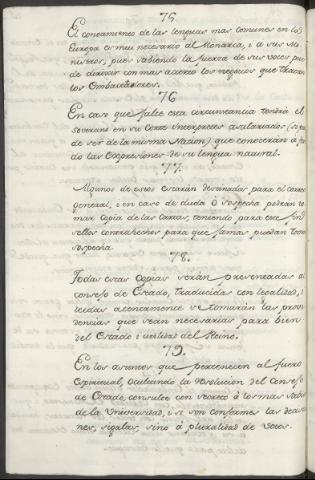 75.
El conocimiento de las lenguas mas comunes en la
Europa es mui necesario al Monarca, i a sus Mi-
nistros, pues sabiendo la fuerza de sus voces pue-
de dirixir con mas acierto los negocios que tratan
los Embaxadores.
76
En caso que falte esta circunstancia tendrá el
Soverano en su Corte Interpretes asalariados (
de ser de la misma Nacion) que conoceran a fon-
do las Expresiones de su lengua natural.
77.
Algunos de estos estarán destinados para el correo
general, i en caso de duda ò sospecha podran to-
mar copia de las Cartas, teniendo para este fin
sellos contrahechos para que jamas puedan tener
sospecha.
78.
Todas estas Copias serán presentadas al
consejo de Estado, traducidas con legalidad, i
leidas atentamente se tomarán las provi-
dencias que sean necesarias para bien
del Estado i utilidad del Reino.
79.
En los asuntos que pertenecen al fuero
Espiritual, ocultando la resolucion del Consejo
de Estado, consulte con secreto à los mas sabios
de la Universidad, i si son conformes las decisio-
nes, sigalas, sino à pluralidad de voces.